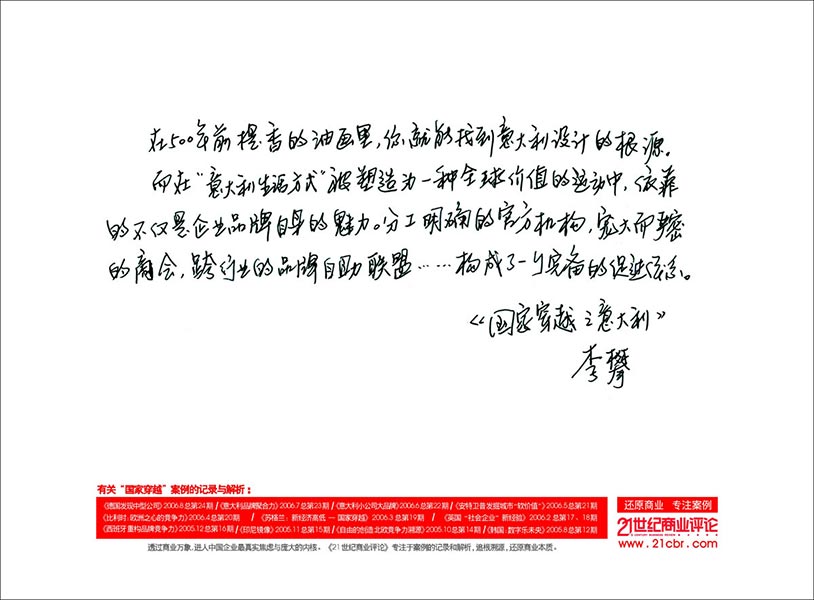 在500年前提香的油画里,你就能找到意大利设计的根源。
而在“意大利生活方式”被塑造为一种全球价值的运动中,依靠
的不仅是企业品牌自身的魅力。分工明确的官方机构,宽大而严密
的商会,跨行业的品牌自助联盟……构成了一个完备的促进体系。
《国家穿越之意大利》
李攀
有关“国家穿越”案例的记录与解析:
《德国发现中型公司》2006.8 总第24期 /《意大利品牌聚合力》2006.7总第23期 /《意大利小公司大品牌》2006.6总第22期 /《安特卫普发掘城市“软价值”》2006.5总第21期
《比利时:欧洲之心的竞争力》2006.4 总第20期 /《苏格兰:新经济高低 一 国家穿越》2006.3 总第19期 /《英国“社会企业”新经验》2006.2 总第17、18期
《西班牙重构品牌竞争力》2005.12 总第16期 /《印尼镜像》2005.11 总第15期 /《自由的创造北欧竞争力溯源》2005.10总第14期 /《韩国:数字乐未央》2005.8总第12期
还原商业 专注案例
21世纪商业评论
www.21cbr.com
透过商业万象,进入中国企业最真实焦虑与庞大的内核。《21世纪商业评论》专注于案例的记录和解析,追根溯源,还原商业本质。